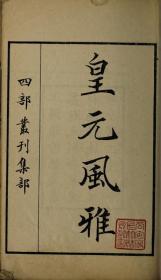 皇元風雅
四部叢刊集部